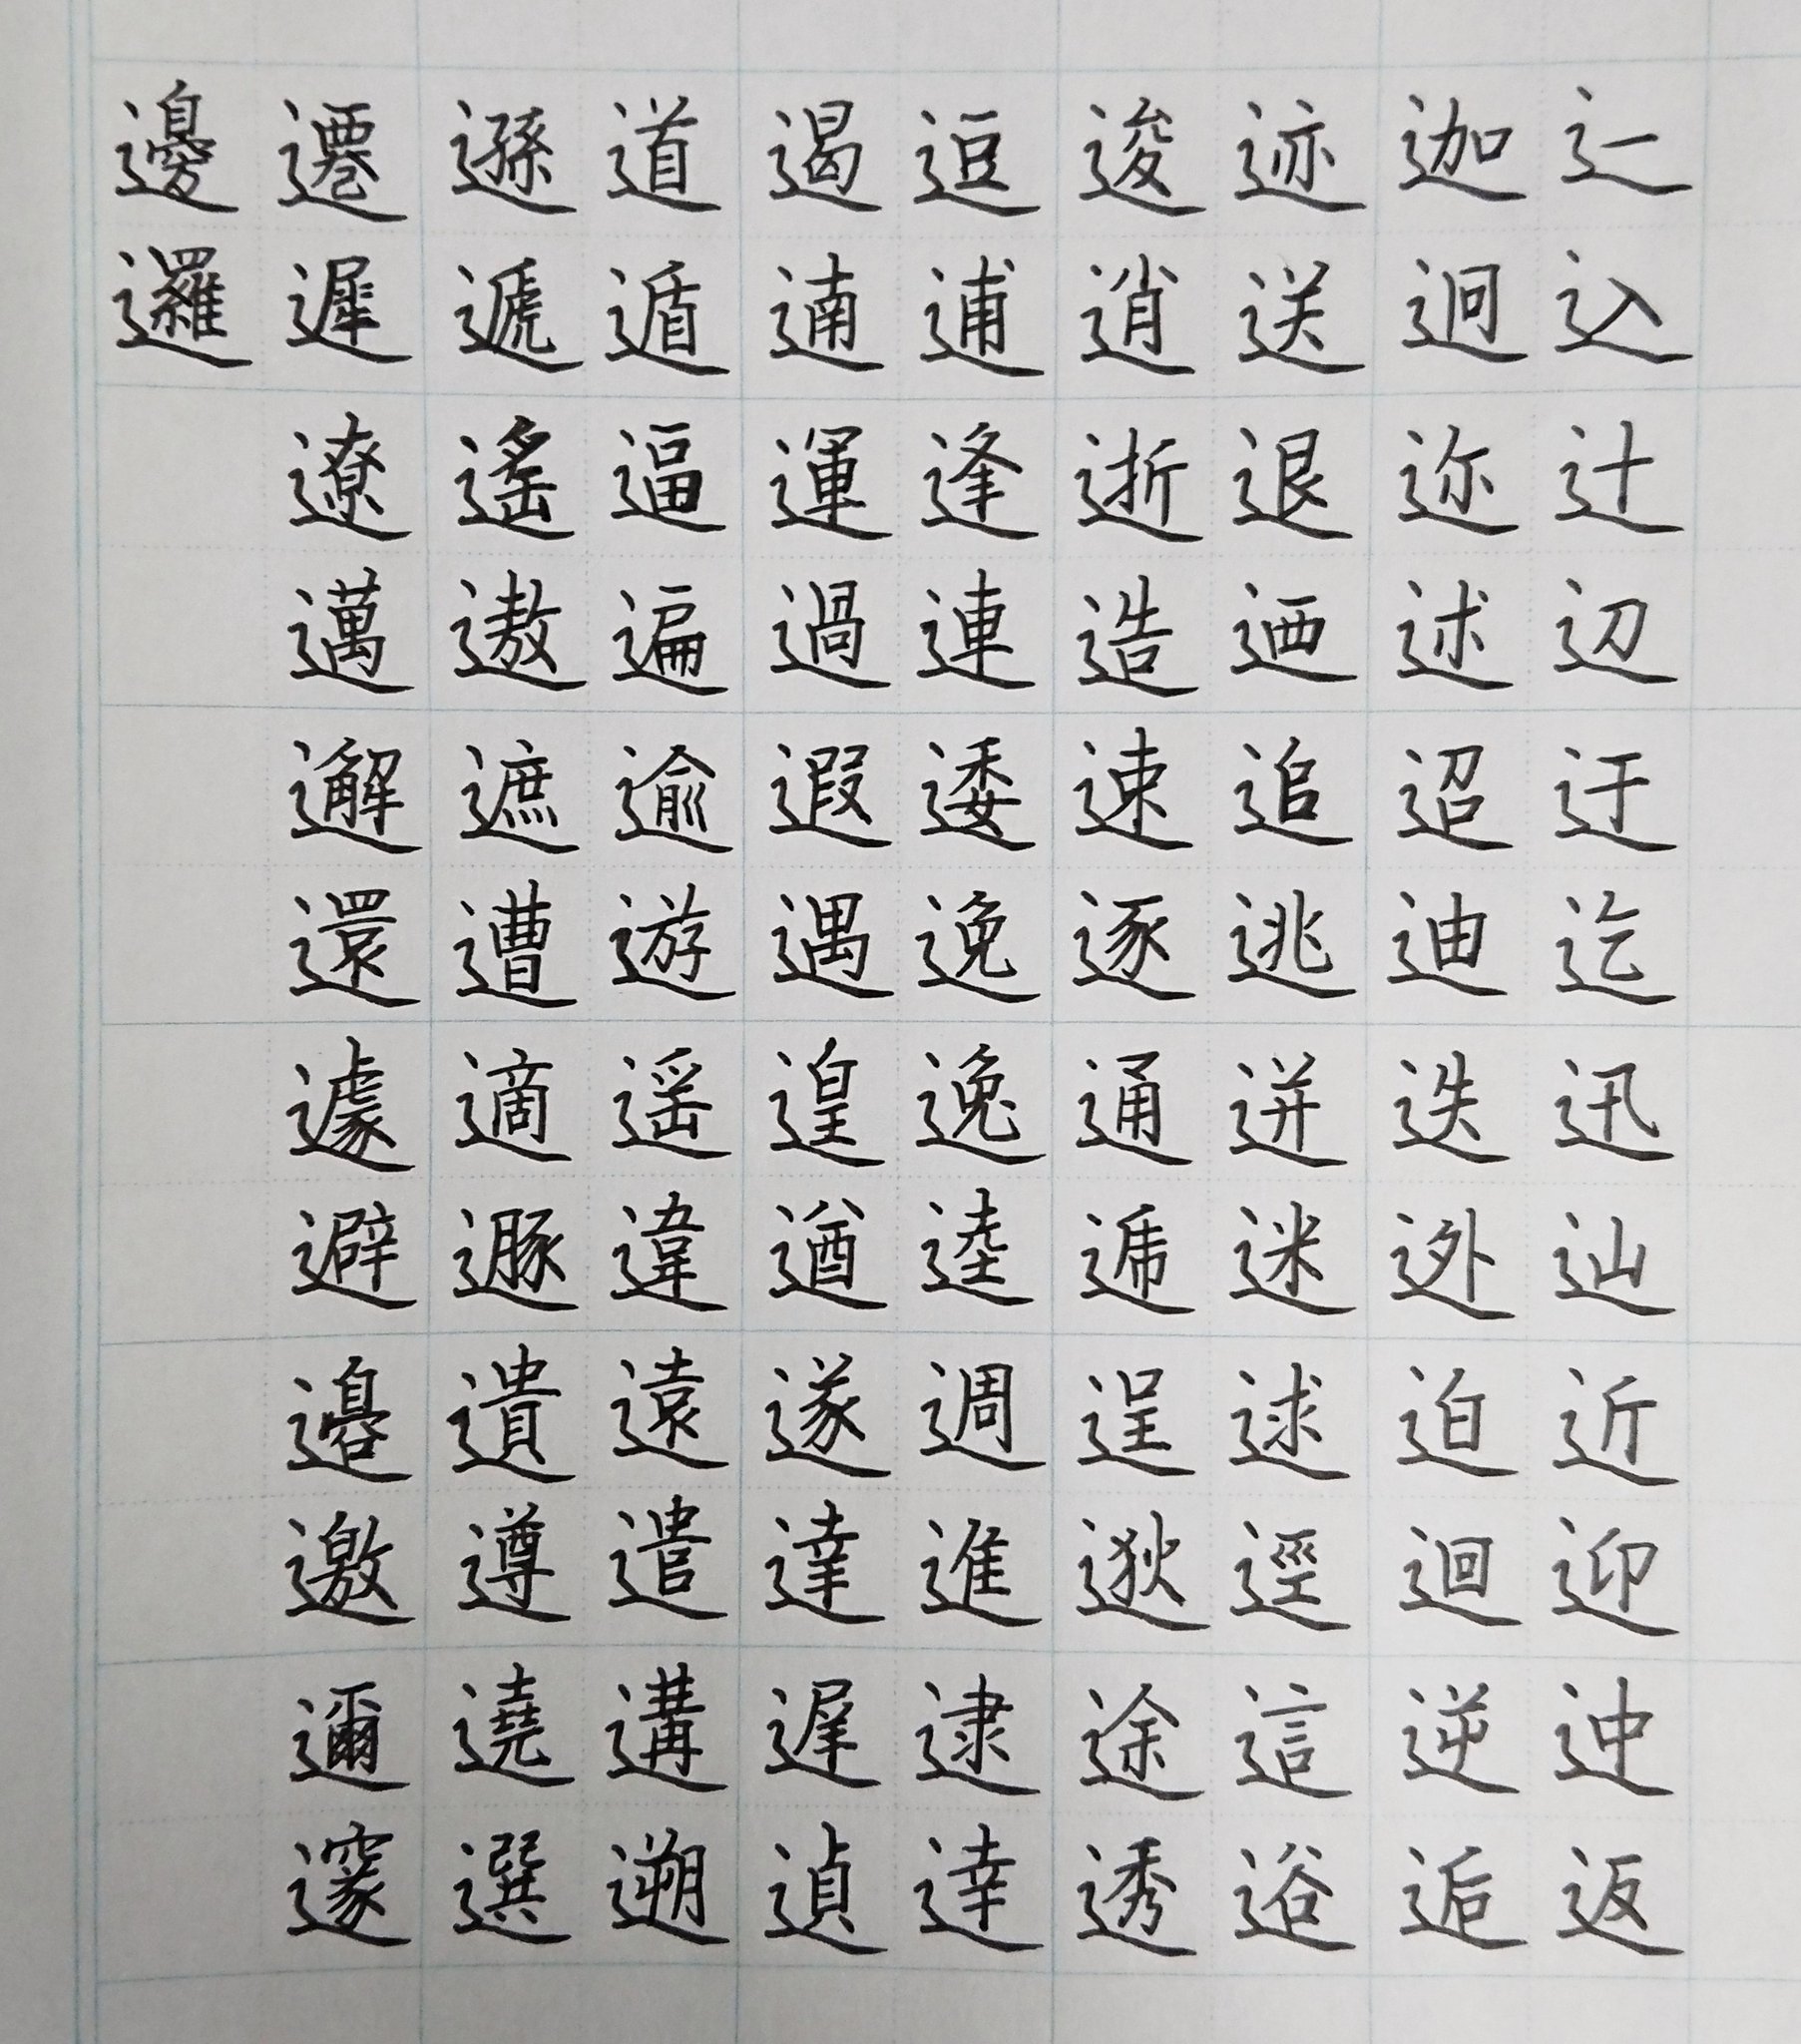 辷込辻辺迂迄迅辿近迎迚返
迦迥迩述迢迪迭迯迫迴逆逅
迹送退迺追逃迸迷逑逕這逧
逡逍逝造速逐通逓逞逖途透
逗逋逢連逶逸逸逵週進逮逹
遏遖運過遐遇遑遒遂達遅遉
道遁逼遍逾遊遥違遠遣遘遡
遜遞遙遨遮遭適遯遺遵遶選
遷遲遼邁邂還遽避邉邀邇邃
邊邏